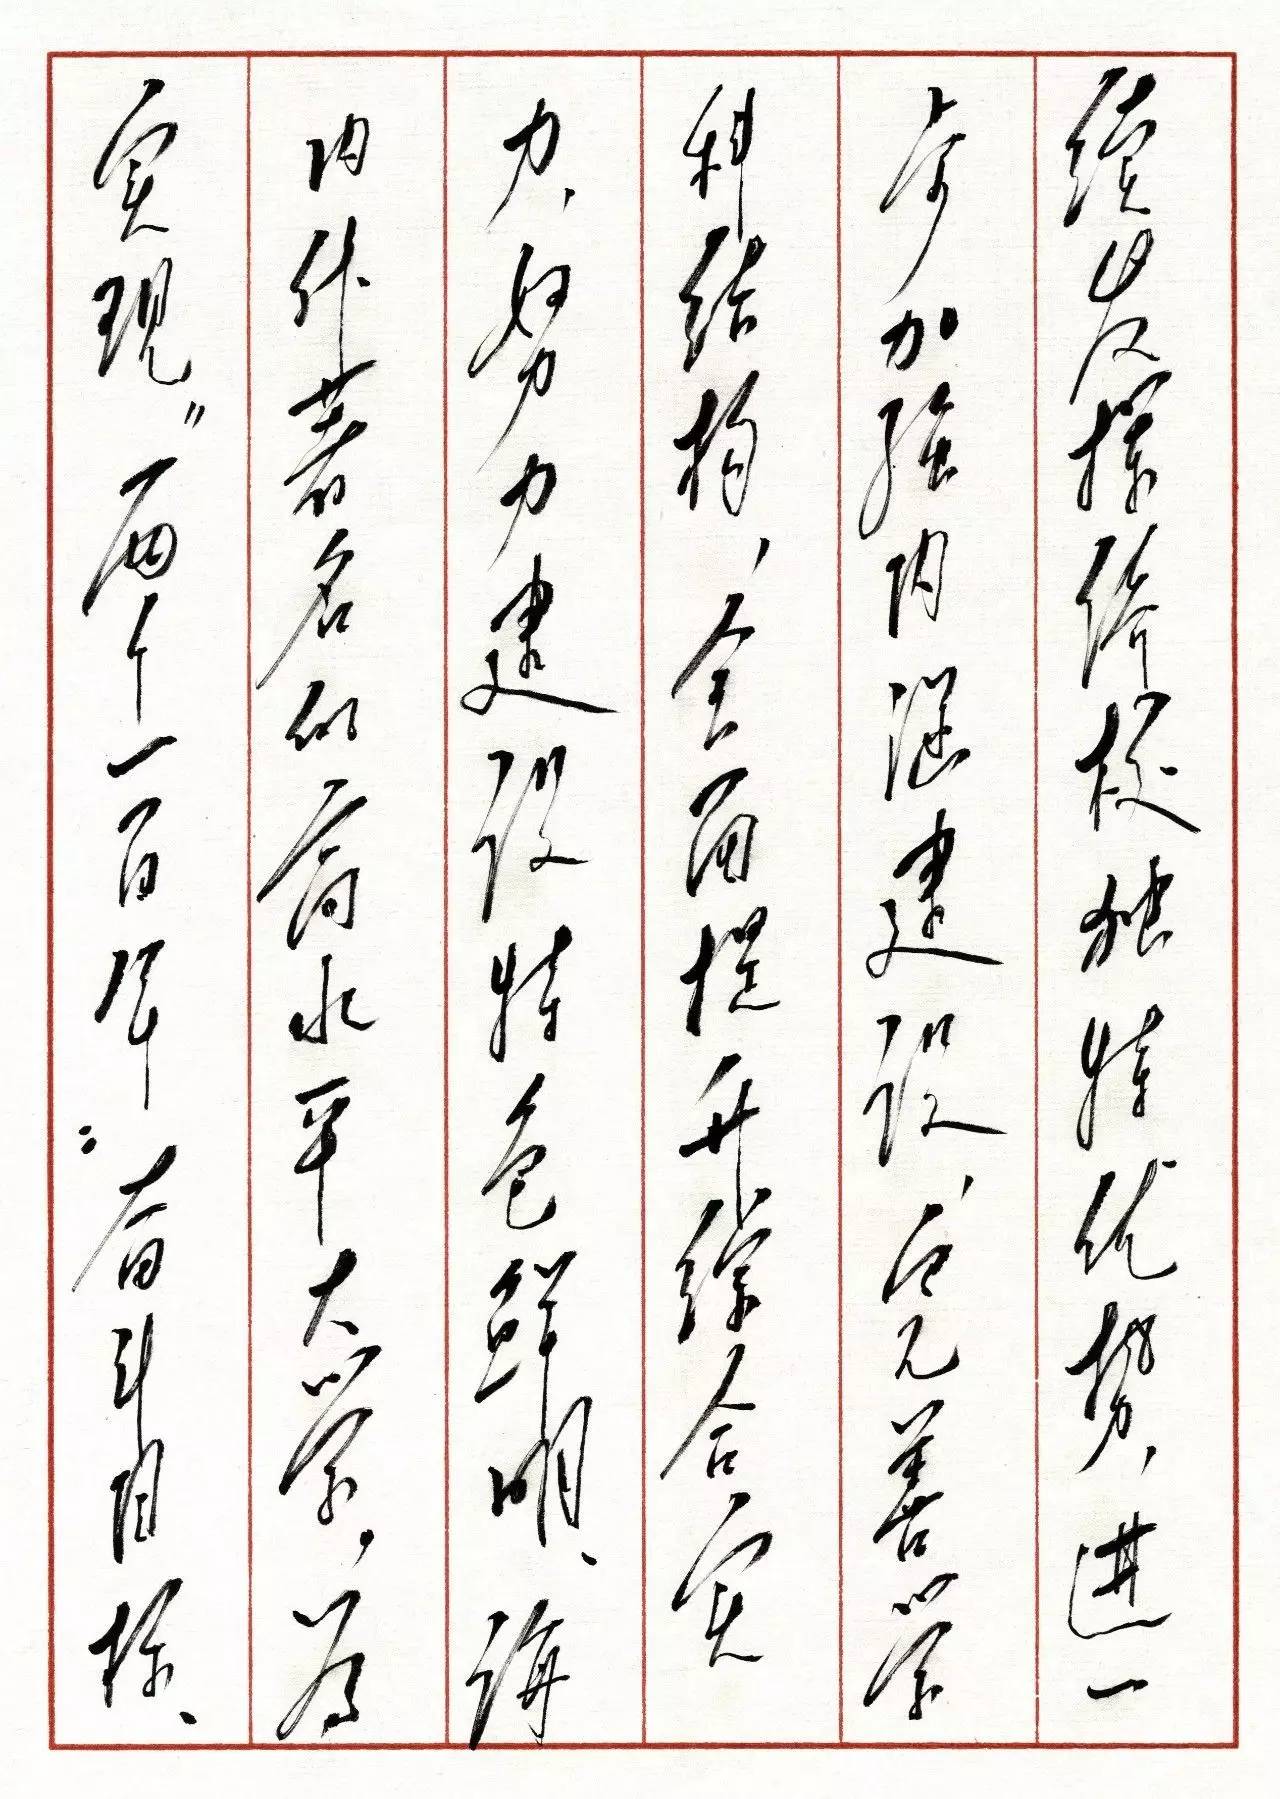 续发挥侨校独特优势，进一
步加强内涵建设，完善学
科结构，全面提升综合实
力，努力建设特色鲜明、海
内外著名的高水平大学，为
实现“两个一百年”奋斗目标、